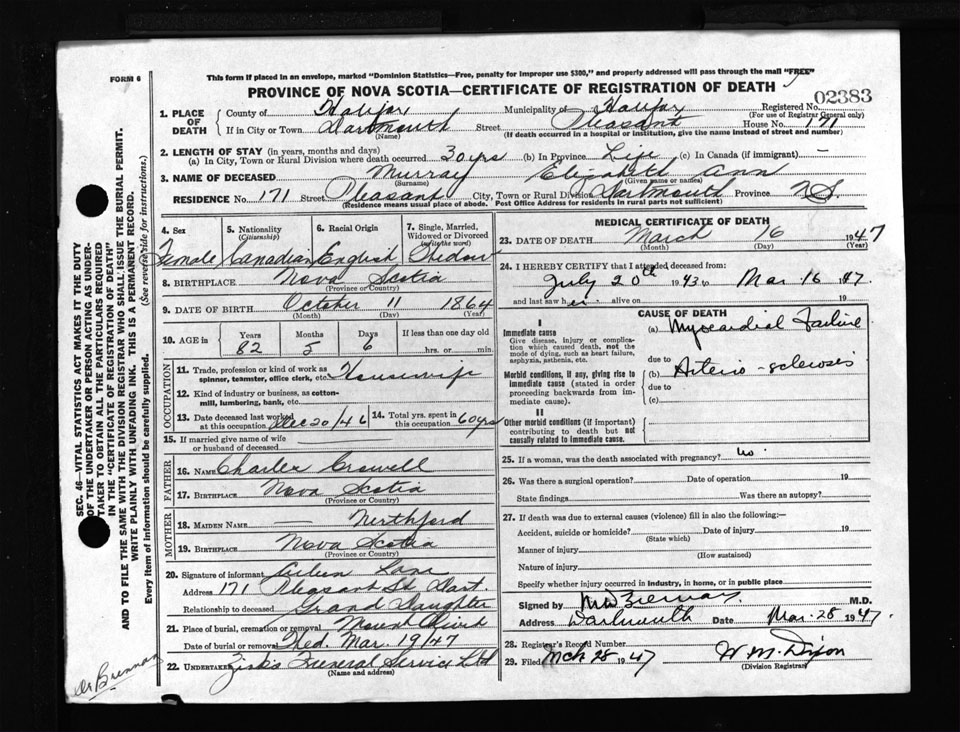 FORM 6
This form if placed in an envelope, marked "Dominion Statistics—Free, penalty for improper use $300," and properly addressed will pass through the mail "FREE"
PROVINCE OF NOVA SCOTIA—CERTIFICATE OF REGISTRATION OF DEATH
02383
1. PLACE OF DEATH County of Halifax Municipality of Halifax Registered No. (For use of Registrar General only)
If in City or Town Dartmouth (Name) Street Pleasant House No. 171
(If death occurred in a hospital or institution, give the name instead of street and number)
2. LENGTH OF STAY (in years, months and days)
(a) In City, Town or Rural Division where death occurred 30 yrs (b) In Province Life (c) In Canada (if immigrant) —
3. NAME OF DECEASED Murray (Surname) Elizabeth Ann (Given name or names)
RESIDENCE No. 171 Street Pleasant City, Town or Rural Division Dartmouth Province N.S.
(Residence means usual place of abode. Post Office Address for residents in rural parts not sufficient)
4. Sex Female
5. Nationality (Citizenship) Canadian
6. Racial Origin English
7. Single, Married, Widowed or Divorced (write the word) Widow
8. BIRTHPLACE Nova Scotia
(Province or Country)
9. DATE OF BIRTH October 11 1864
(Month) (Day) (Year)
10. AGE in Years 82 Months 5 Days 6 If less than one day old hrs. or min.
OCCUPATION
11. Trade, profession or kind of work as spinner, teamster, office clerk, etc. Housewife
12. Kind of industry or business, as cotton-mill, lumbering, bank, etc.
13. Date deceased last worked at this occupation Dec 20/46
14. Total yrs. spent in this occupation 60 yrs
15. If married give name of wife or husband of deceased
FATHER
16. NAME Charles Crowell
17. BIRTHPLACE Nova Scotia
(Province or Country)
MOTHER
18. MAIDEN NAME —
19. BIRTHPLACE Nova Scotia
(Province or Country)
20. Signature of informant Lane
Address 171 Pleasant St Dart.
Relationship to deceased Grand Daughter
21. Place of burial, cremation or removal Mount
Date of burial or removal Wed. Mar. 19/47
22. UNDERTAKER Zink's Funeral Service Ltd
(Name and address)
MEDICAL CERTIFICATE OF DEATH
23. DATE OF DEATH March 16 1947
(Month) (Day) (Year)
24. I HEREBY CERTIFY that I attended deceased from:
July 20th 1943 to Mar 16 1947
and last saw her alive on 19
CAUSE OF DEATH
I
Immediate cause (a) Myocardial Failure
Give disease, injury or complication which caused death, not the mode of dying, such as heart failure, asphyxia, asthenia, etc.
due to
Morbid conditions, if any, giving rise to immediate cause (stated in order proceeding backwards from immediate cause).
(b) Arterio-sclerosis
due to
(c)
II
Other morbid conditions (if important) contributing to death but not causally related to immediate cause.
25. If a woman, was the death associated with pregnancy? no
26. Was there a surgical operation? Date of operation 19
State findings Was there an autopsy?
27. If death was due to external causes (violence) fill in also the following:—
Accident, suicide or homicide? Date of injury 19
(State which)
Manner of injury
(How sustained)
Nature of injury
Specify whether injury occurred in industry, in home, or in public place
Signed by M.D.
Address Dartmouth Date Mar. 28 1947
28. Registrar's Record Number
29. Filed Mch 28 1947 W. M. Dixon
(Division Registrar)
SEC. 46—VITAL STATISTICS ACT MAKES IT THE DUTY
OF THE UNDERTAKER OR PERSON ACTING AS UNDER-
TAKER TO OBTAIN ALL THE PARTICULARS REQUIRED
IN THE "CERTIFICATE OF REGISTRATION OF DEATH"
AND TO FILE THE SAME WITH THE DIVISION REGISTRAR WHO SHALL ISSUE THE BURIAL PERMIT.
WRITE PLAINLY WITH UNFADING INK. THIS IS A PERMANENT RECORD.
Every item of information should be carefully supplied. (See reverse side for instructions.)
Dr Brennan